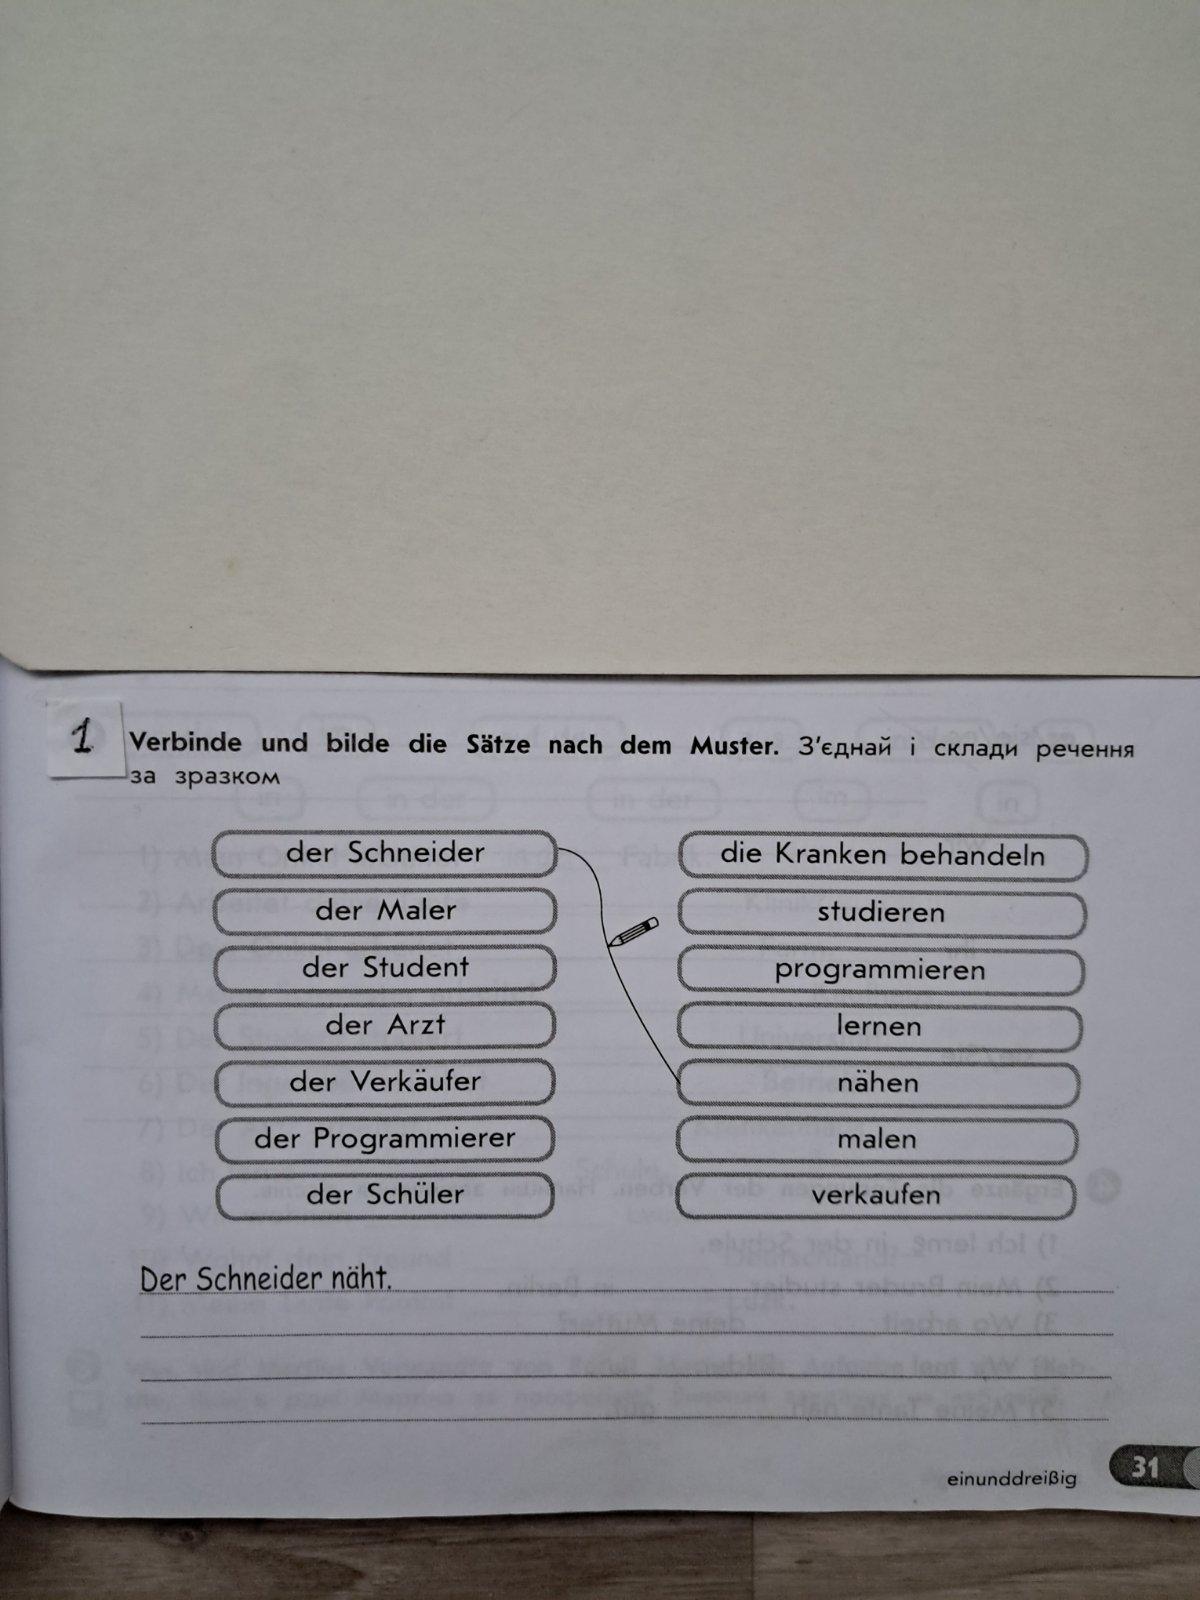 1
Verbinde und bilde die Sätze nach dem Muster. З'єднай і склади речення
за зразком
der Schneider
der Maler
der Student
der Arzt
der Verkäufer
der Programmierer
der Schüler
die Kranken behandeln
studieren
programmieren
lernen
nähen
malen
verkaufen
Der Schneider näht.
einunddreißig
31